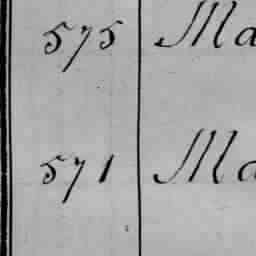 575 Ma
571 Ma